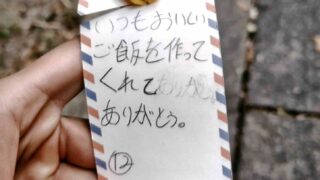 いつもおいしい
ご飯を作って
くれてありがとう。
ありがとう。
⑫